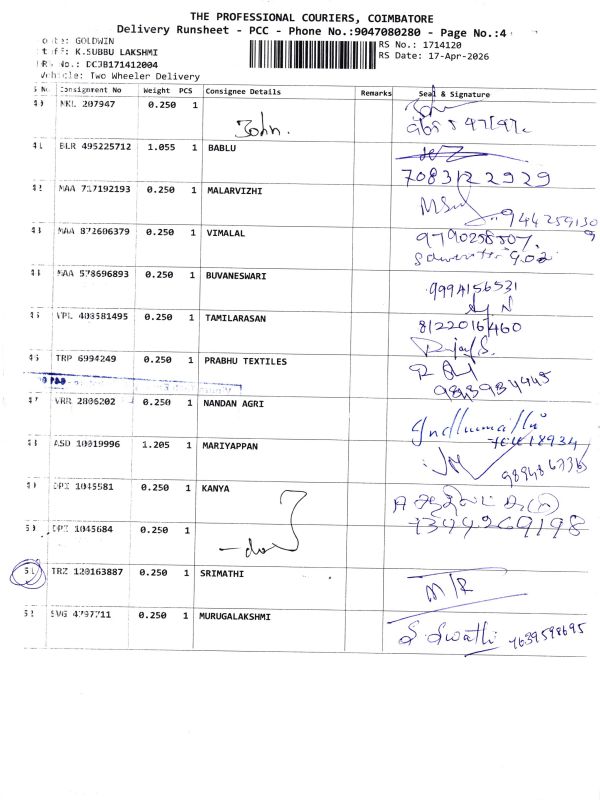 THE PROFESSIONAL COURIERS, COIMBATORE
Delivery Runsheet - PCC - Phone No.:9047080280 - Page No.:4
GOLDWIN
K.SUBBU LAKSHMI
No.: DCJB171412004
Vehicle: Two Wheeler Delivery
RS No.: 1714120
RS Date: 17-Apr-2026
S No. Consignment No Weight PCS Consignee Details Remarks Seal & Signature
40 NKL 207947 0.250 1 John.
41 BLR 495225712 1.055 1 BABLU
7083122929
42 MAA 717192193 0.250 1 MALARVIZHI
9442591309
43 MAA 872606379 0.250 1 VIMALAL
9790258507.
44 MAA 578696893 0.250 1 BUVANESWARI
9994156531
45 VPL 408581495 0.250 1 TAMILARASAN
8122016460
46 TRP 6994249 0.250 1 PRABHU TEXTILES
47 VRR 2806202 0.250 1 NANDAN AGRI
48 ASD 10019996 1.205 1 MARIYAPPAN
49 OPZ 1045581 0.250 1 KANYA
7344269198
50 OPZ 1045684 0.250 1
51 TRZ 120163887 0.250 1 SRIMATHI
M/R
52 SVG 4797711 0.250 1 MURUGALAKSHMI
S. Swathi 7639598695